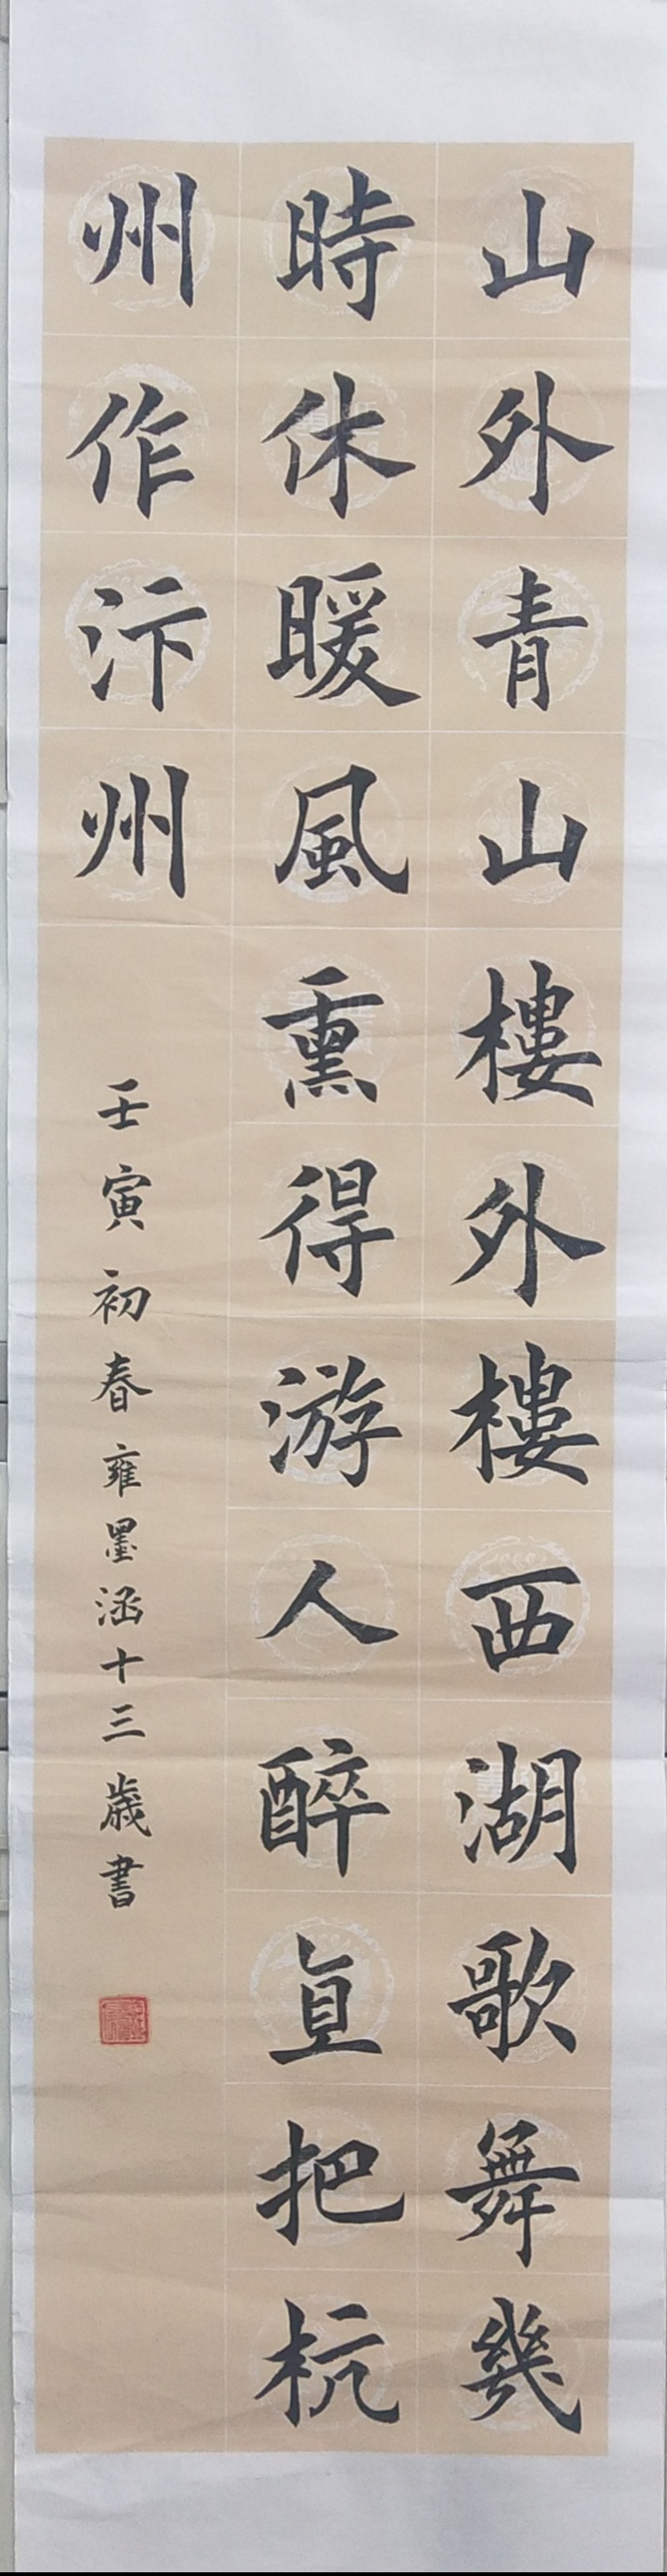 山外青山樓外樓西湖歌舞幾
時休暖風熏得游人醉直把杭
州作汴州
壬寅初春雍墨涵十三歲書